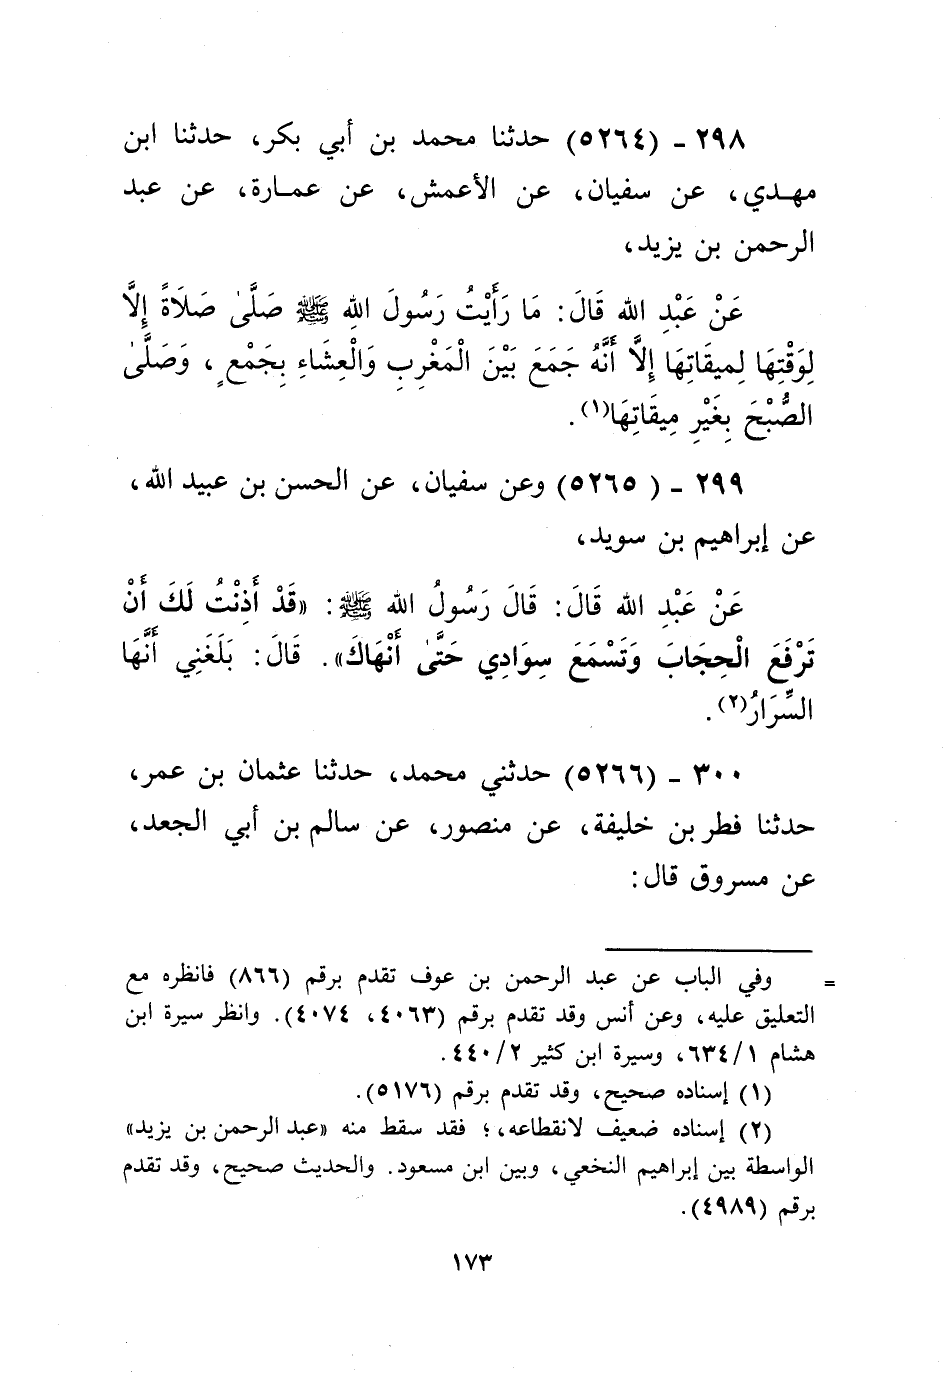 ٢٩٨ - (٥٢٦٤) حدثنا محمد بن أبي بكر، حدثنا ابن
مهـدي، عن سفيان، عن الأعمش، عن عمـارة، عن عبد
الرحمن بن يزيد،
عَنْ عَبْدِ الله قَالَ: مَا رَأَيْتُ رَسُولَ اللهِ ﷺ صَلَّىٰ صَلَاةً إِلَّا
لِوَقْتِهَا لِمِيقَاتِهَا إِلَّا أَنَّهُ جَمَعَ بَيْنَ الْمَغْرِبِ وَالْعِشَاءِ بِجَمْعٍ ، وَصَلَّىٰ
الصُّبْحَ بِغَيْرِ مِيقَاتِهَا(١).
٢٩٩ - ( ٥٢٦٥) وعن سفيان، عن الحسن بن عبيد الله،
عن إبراهيم بن سويد،
عَنْ عَبْدِ الله قَالَ: قَالَ رَسُولُ الله ﷺ: «قَدْ أَذِنْتُ لَكَ أَنْ
تَرْفَعَ الْحِجَابَ وَتَسْمَعَ سِوَادِي حَتَّىٰ أَنْهَاكَ». قَالَ: بَلَغَنِي أَنَّهَا
السِّرَارُ(٢).
٣٠٠ - (٥٢٦٦) حدثني محمد، حدثنا عثمان بن عمر،
حدثنا فطر بن خليفة، عن منصور، عن سالم بن أبي الجعد،
عن مسروق قال:
= وفي الباب عن عبد الرحمن بن عوف تقدم برقم (٨٦٦) فانظره مع
التعليق عليه، وعن أنس وقد تقدم برقم (٤٠٦٣، ٤٠٧٤). وانظر سيرة ابن
هشام ١/ ٦٣٤، وسيرة ابن كثير ٢/ ٤٤٠.
(١) إسناده صحيح، وقد تقدم برقم (٥١٧٦).
(٢) إسناده ضعيف لانقطاعه،؛ فقد سقط منه «عبد الرحمن بن يزيد»
الواسطة بين إبراهيم النخعي، وبين ابن مسعود. والحديث صحيح، وقد تقدم
برقم (٤٩٨٩).
١٧٣